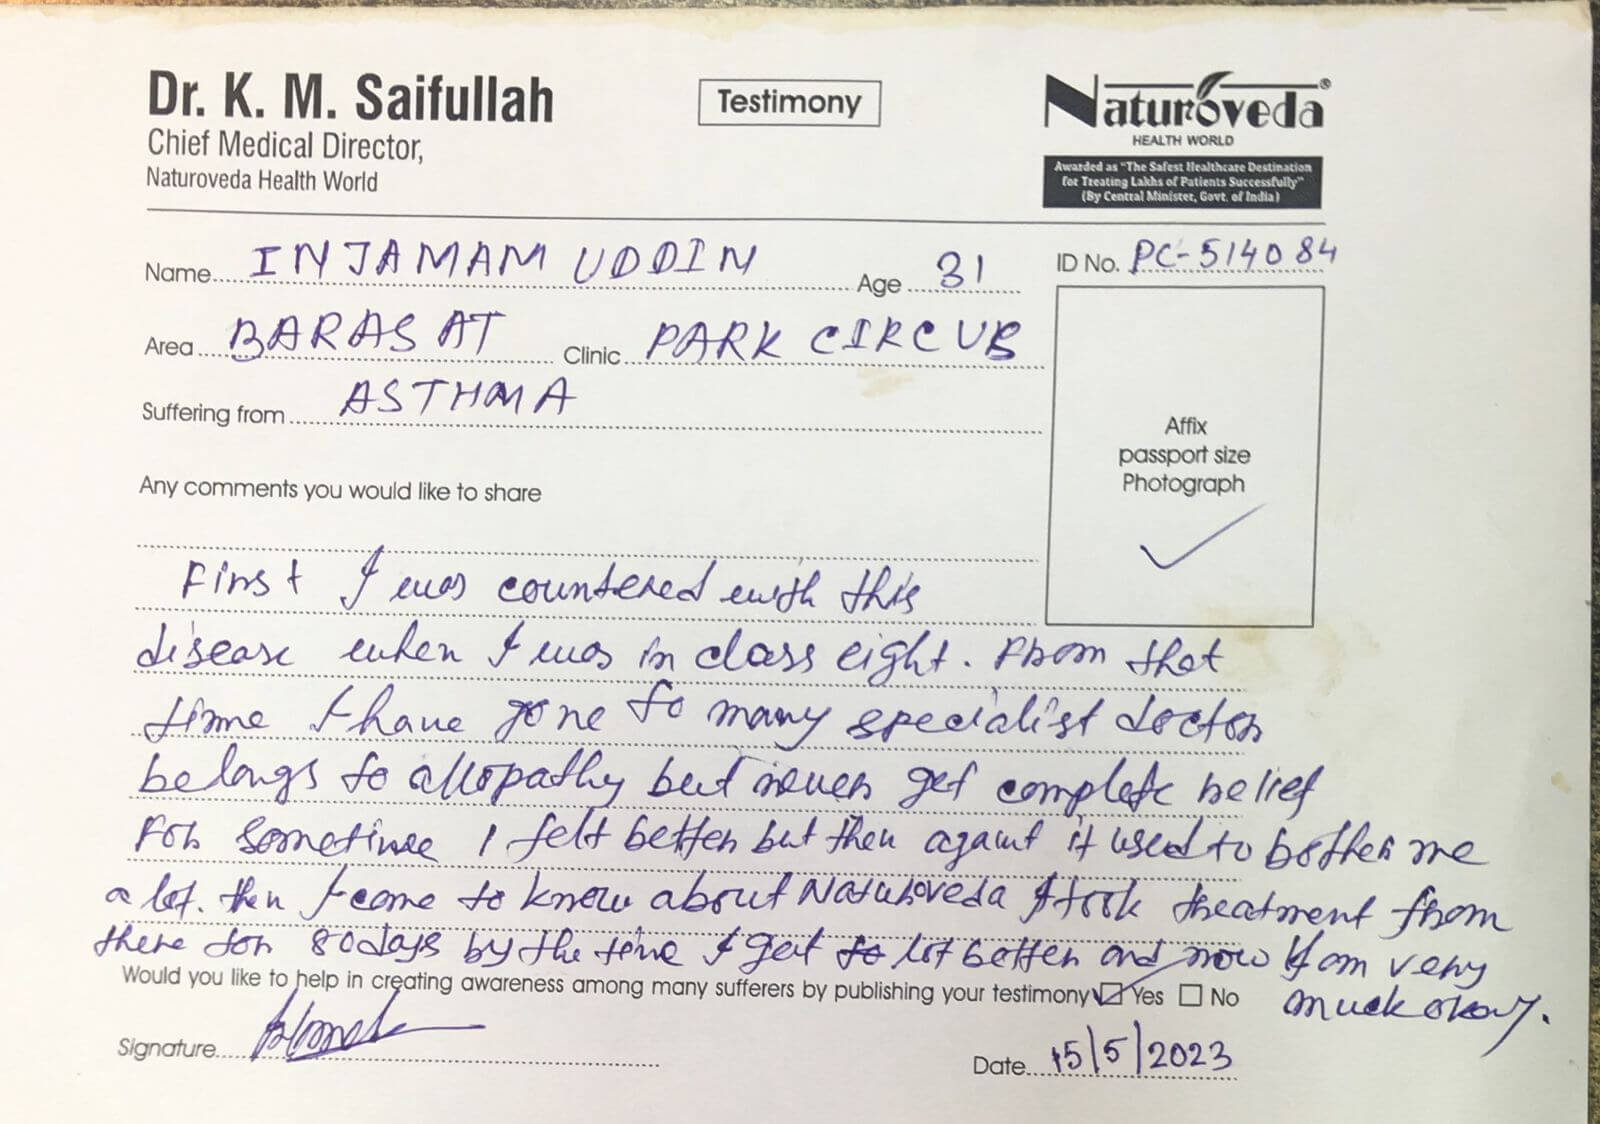 Dr. K. M. Saifullah
Chief Medical Director,
Naturoveda Health World
Testimony
Naturoveda®
HEALTH WORLD
Awarded as "The Safest Healthcare Destination
for Treating Lakhs of Patients Successfully"
(By Central Minister, Govt. of India)
Name INJAMAM UDDIN Age 31 ID No. PC-514084
Area BARASAT Clinic PARK CIRCUS
Suffering from ASTHMA
Affix
passport size
Photograph
Any comments you would like to share
First I was countered with this
disease when I was in class eight. From that
time I have gone to many specialist doctor
belongs to allopathy but never get complete relief
For sometime I felt better but then again it used to bother me
a lot. then I came to know about Naturoveda I took treatment from
there for 80 days by the time I get to lot better and now I am very
much okay.
Would you like to help in creating awareness among many sufferers by publishing your testimony Yes No
Signature
Date 15/5/2023